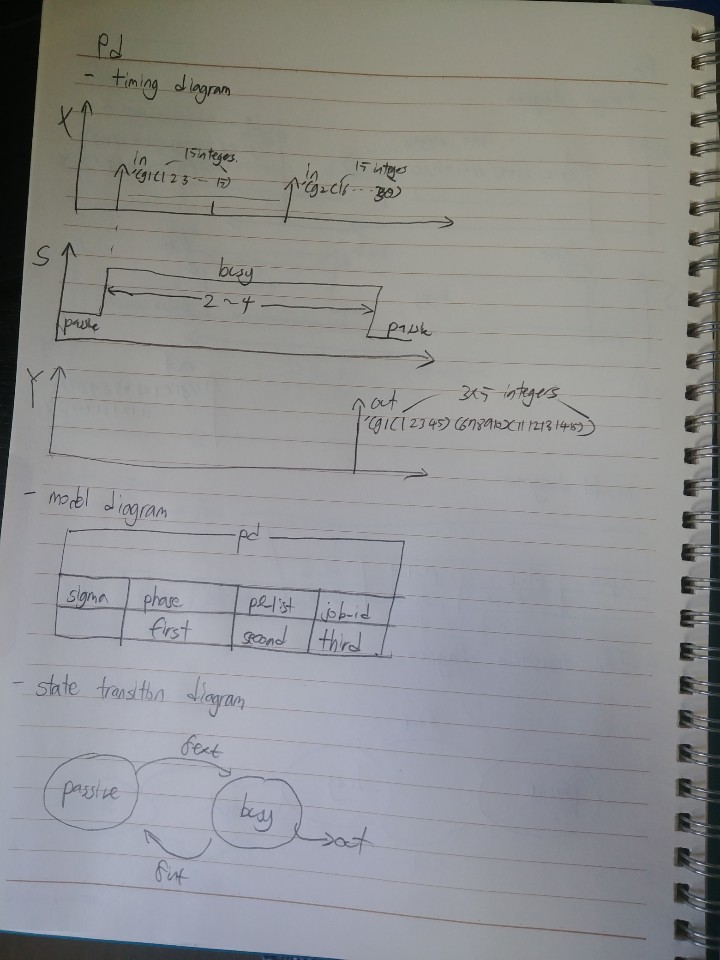 pd
- timing diagram
X
in 15 integers.
'(g1(1 2 3 --- 15)
in 15 integers
'(g2(16 --- 30)
S
busy
2 ~ 4
passive
passive
Y
out 3x5 integers
'(g1(1 2 3 4 5) (6 7 8 9 10)(11 12 13 14 15))
- model diagram
pd
sigma phase job-id
first second third
- state transition diagram
δext
passive
busy
out
δint